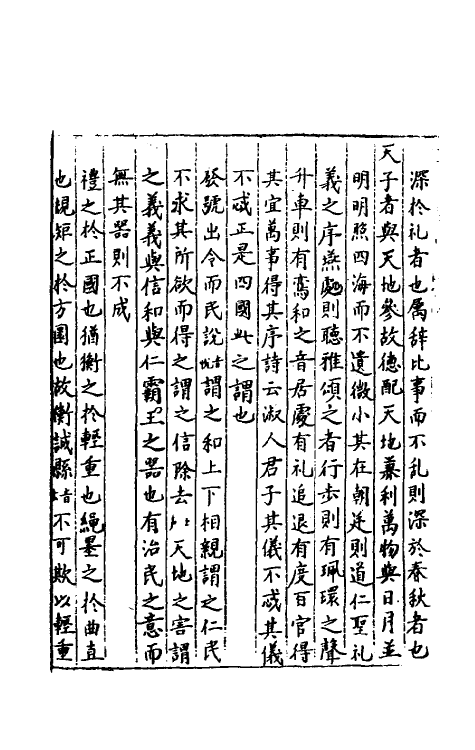 深於礼者也属辞比事而不乱則深於春秋者也
天子者與天地參故德配天地兼利萬物與日月並
明明照四海而不遺微小其在朝廷則道仁聖礼
義之序燕處則聽雅頌之者行步則有珮環之聲
升車則有鸞和之音居處有礼進退有度百官得
其宜萬事得其序詩云淑人君子其儀不忒其儀
不忒正是四國此之謂也
發號出令而民説音悦謂之和上下相親謂之仁民
不求其所欲而得之謂之信除去天地之害謂
之義義與信和與仁霸王之器也有治民之意而
無其器則不成
禮之於正國也猶衡之於輕重也繩墨之於曲直
也規矩之於方圓也故衡誠縣音不可欺以輕重